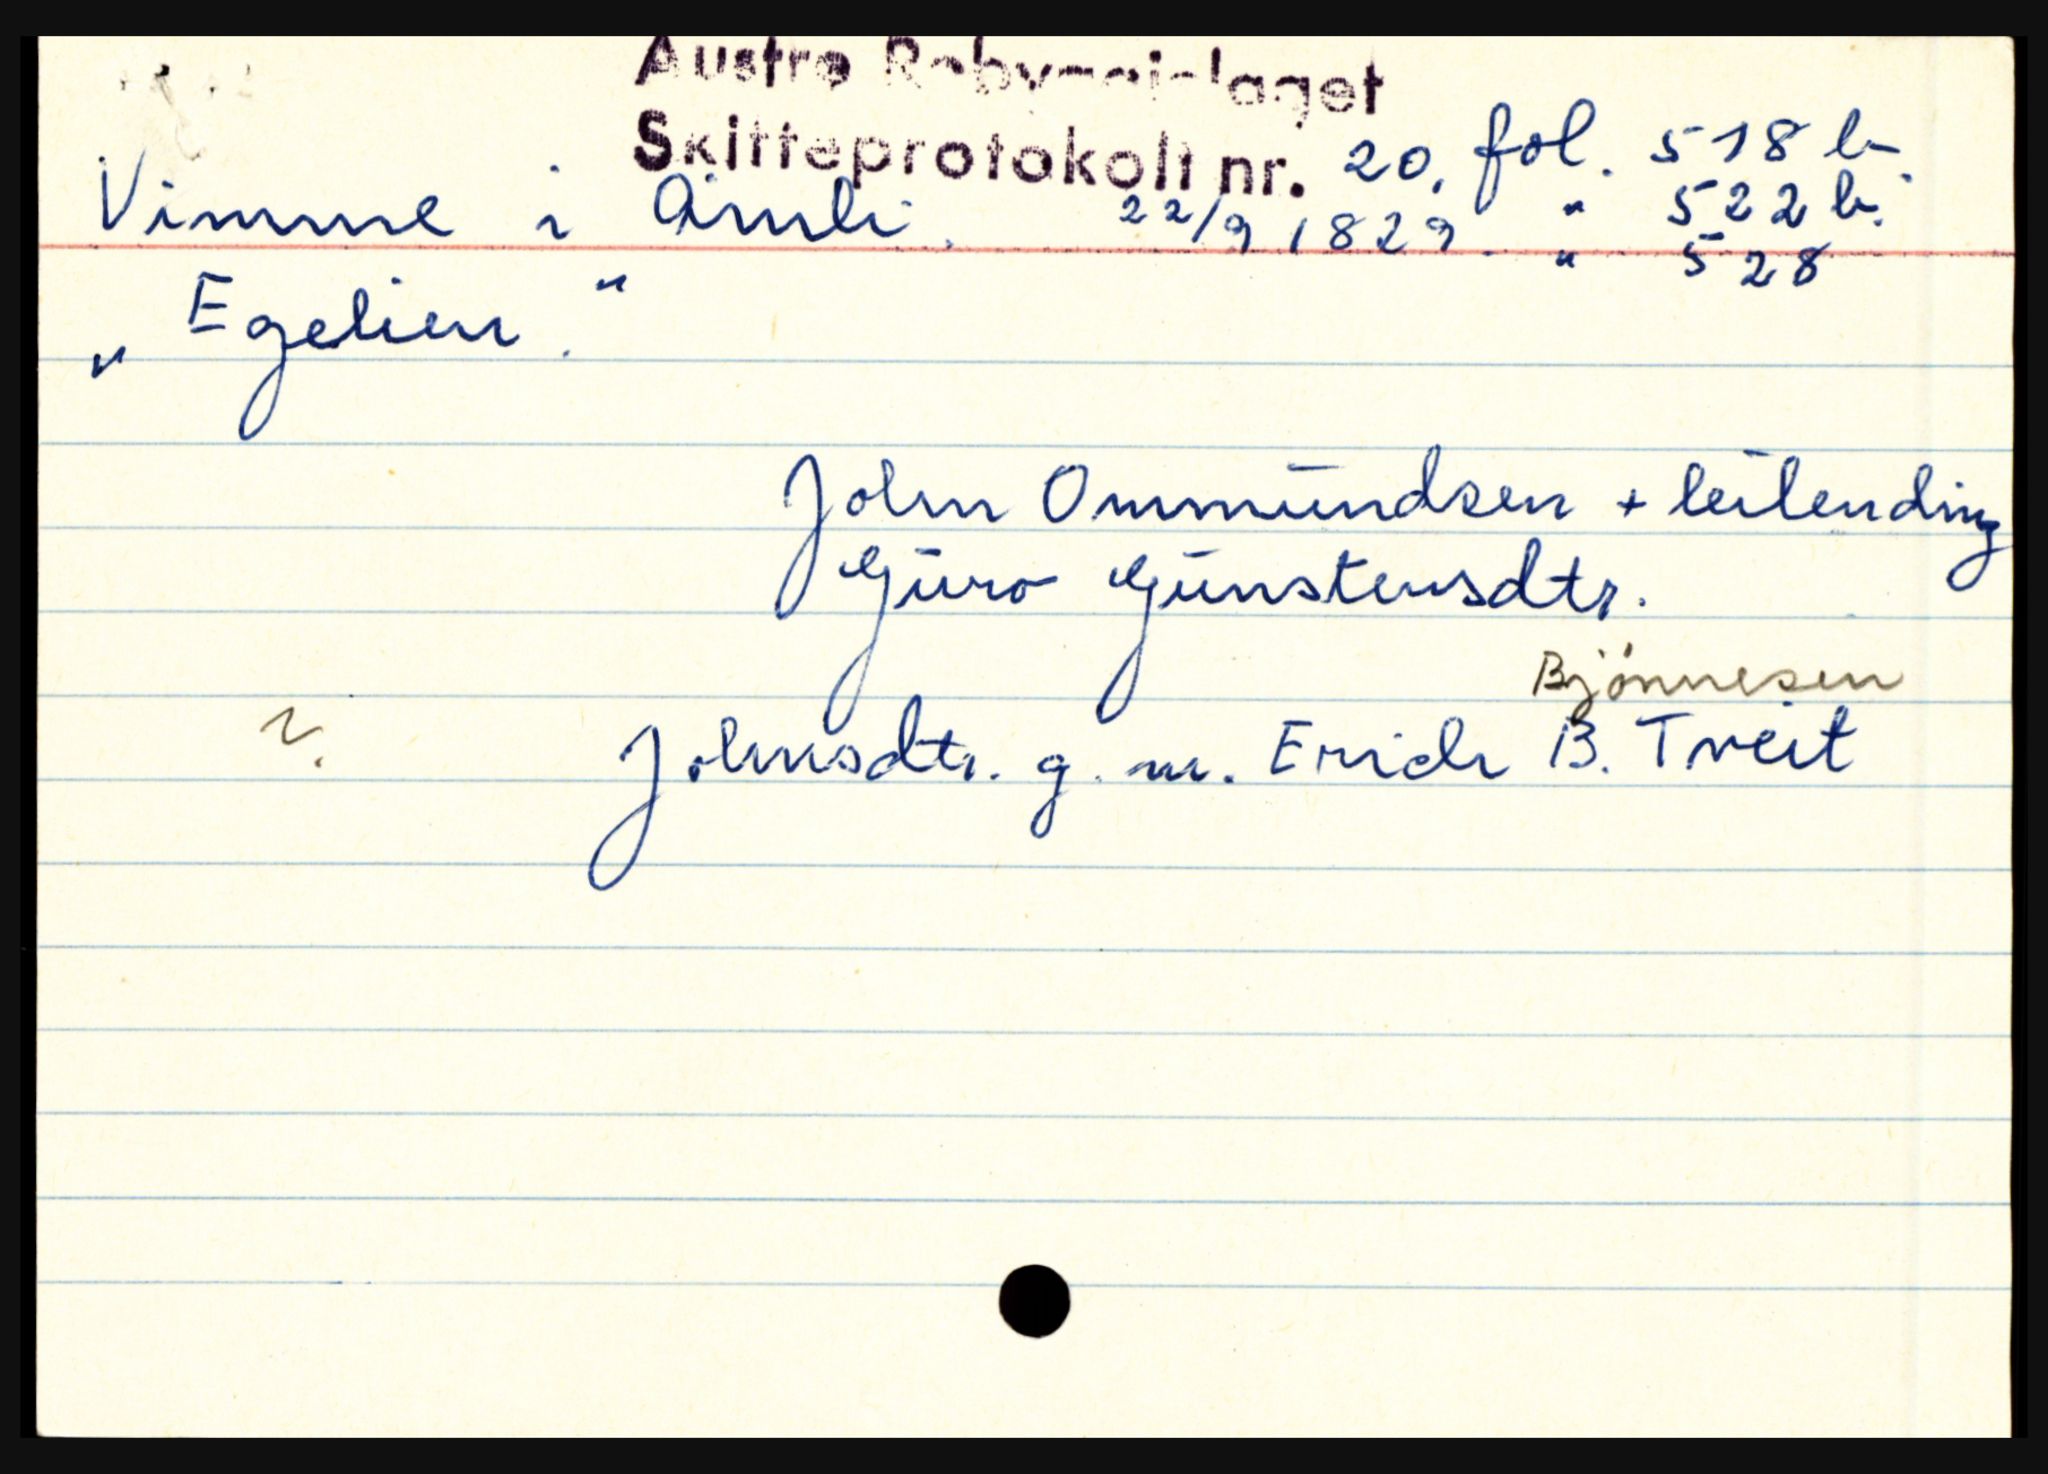 Austre Robyggjelaget
Skifteprotokoll nr. 20. fol. 518 b.
Vimme i Åmli. 22/9 1829. " 522 b.
" 528
" Egelien. "
John Ommundsen + leilending
Guro Gunstensdtr.
Bjönnesen
Johnsdtr. g. m. Erich B. Tveit